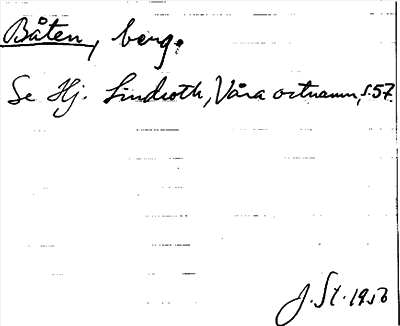 Båten, berg.
Se Hj. Lindroth, Våra ortnamn, s. 57.
J. St. 1956